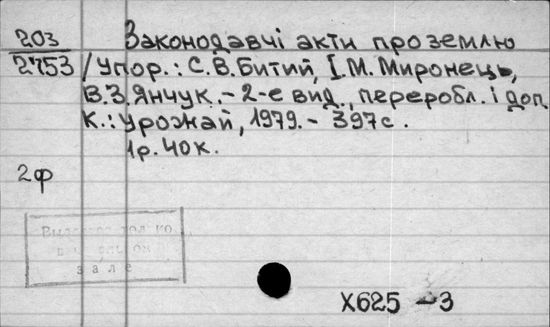 203 Законодавчі акти про землю
2753 / Упор.: С.В.Битий, І.М. Миронець,
В.З.Янчук. – 2-е вид., переробл. і доп.
К.: Урожай, 1979. – 397с.
1р. 40к.
2ф
зале
Х625 – 3